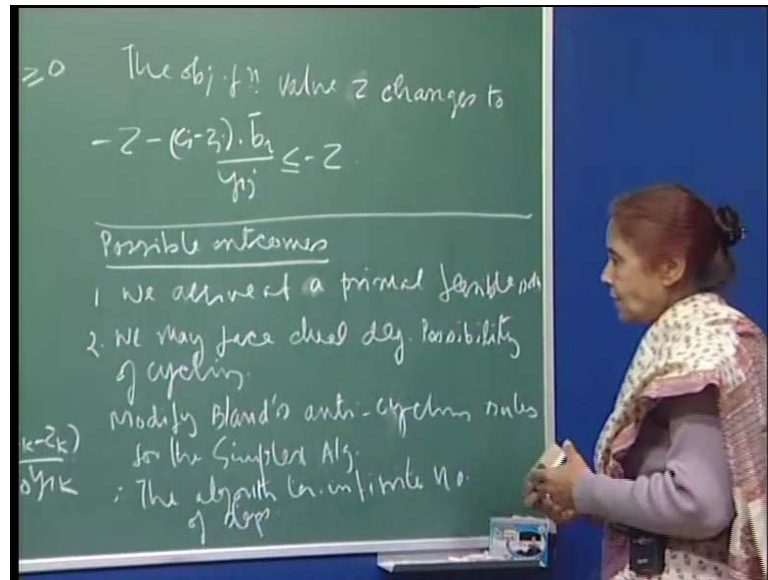 ≥0 The obj. fn value z changes to
-Z - (cj-zj). b̄r / yrj ≤ -Z
Possible outcomes
1 We arrive at a primal feasible soln
2. We may face dual deg. Possibility
of cycling.
Modify Bland's anti-cycling rules
k-zk) / yrk
for the Simplex Alg.
∴ The algorith in finite no.
of steps